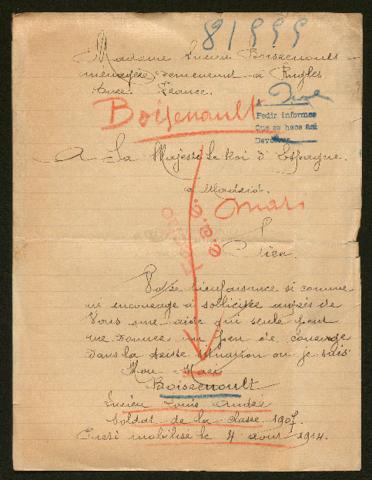 81999
Madame Lucien Boissenault
menagère demeurant a Pingles
Indre. France.
Boissenault
Pedir informes
Que se hace Asi
Devolver
A Sa Majesté le Roi d'Espagne.
a Madrid.
Sire.
Votre bienfaisance si connue
me encourage a solliciter auprès de
Vous une aide qui seule peut
me donner un peu de courage
dans la situation ou je suis
Mon Mari
Boissenault
Lucien Louis
Soldat de la classe 1907.
mobilisé le 4 aout 1914.